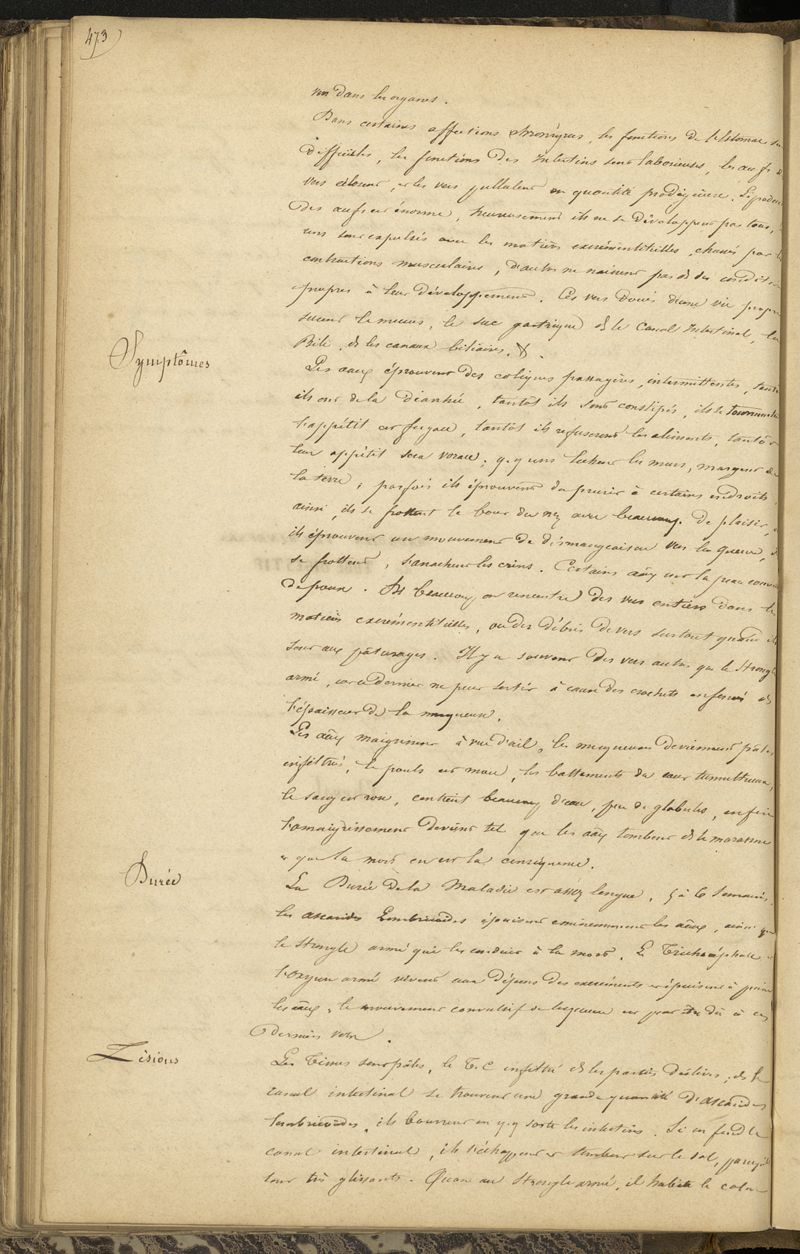 473
dans les organes.
Dans certaines affections chroniques, les fonctions de l'estomac
difficiles, les fonctions des intestins sont laborieuses, les œufs
vers éclosent, et les vers pullulent en quantité prodigieuse. Le produit
des œufs est énorme, heureusement ils ne se développent pas tous,
uns sont expulsés avec les matières excrémentitielles, chassés par
contractions musculaires, d'autres ne naissent pas ds des conditions
propres à leur développement. Ces vers doués d'une vie propre
sucent le mucus, le suc gastrique ds le canal intestinal, la
Bile, ds les canaux biliaires.
Symptômes
Les aaux éprouvent des coliques passagères, intermittentes, tantôt
ils ont de la diarrhée, tantôt ils sont constipés, ils se tourmentent
l'appétit est fugace, tantôt ils refuseront les aliments, tantôt
leur appétit sera vorace; q.q uns lèchent les murs, mangent de
la terre, parfois ils éprouvent du prurit à certains endroits
ainsi, ils se frottent le bout du nez avec beaucoup de plaisir,
ils éprouvent un mouvement de démangeaison vers la queue,
se frottent, s'arrachent les crins. Certains aaux ont la peau couverte
de poux. Ds beaucoup on rencontre des vers entiers dans les
matières excrémentitielles, ou des débris de vers surtout quand ils
sont aux pâturages. Il y a souvent des vers autres que le strongle
armé, car ce dernier ne peut sortir à cause des crochets enfoncés ds
l'épaisseur de la muqueuse.
Les aaux maigrissent à vue d'œil, les muqueuses deviennent pâles
infiltrées, le pouls est mou, les battements du cœur tumultueux,
le sang est rose, contient beaucoup d'eau, peu de globules, enfin
l'amaigrissement devient tel que les aaux tombent ds le marasme
et que la mort en est la conséquence.
Durée
La Durée de la Maladie est assez longue, 5 à 6 semaines.
les ascarides lombricoïdes épuisent les aaux, ainsi que
le strongle armé qui les conduit à la mort. Le Trichocéphale et
l'oxyure armé vivent aux dépens des excréments et épuisent à peine
les aaux, le mouvement convulsif de la queue est dû à ces
derniers vers.
Lésions
Les tissus sont pâles, le T.C infiltré ds les parties déclives, ds le
canal intestinal se trouvent une grande quantité d'ascarides
lombricoïdes, ils bourrent en q.q sorte les intestins. Si on fend le
canal intestinal, ils s'échappent et tombent sur le sol, parce qu'ils
sont très glissants. Quant au strongle armé, il habite le colon